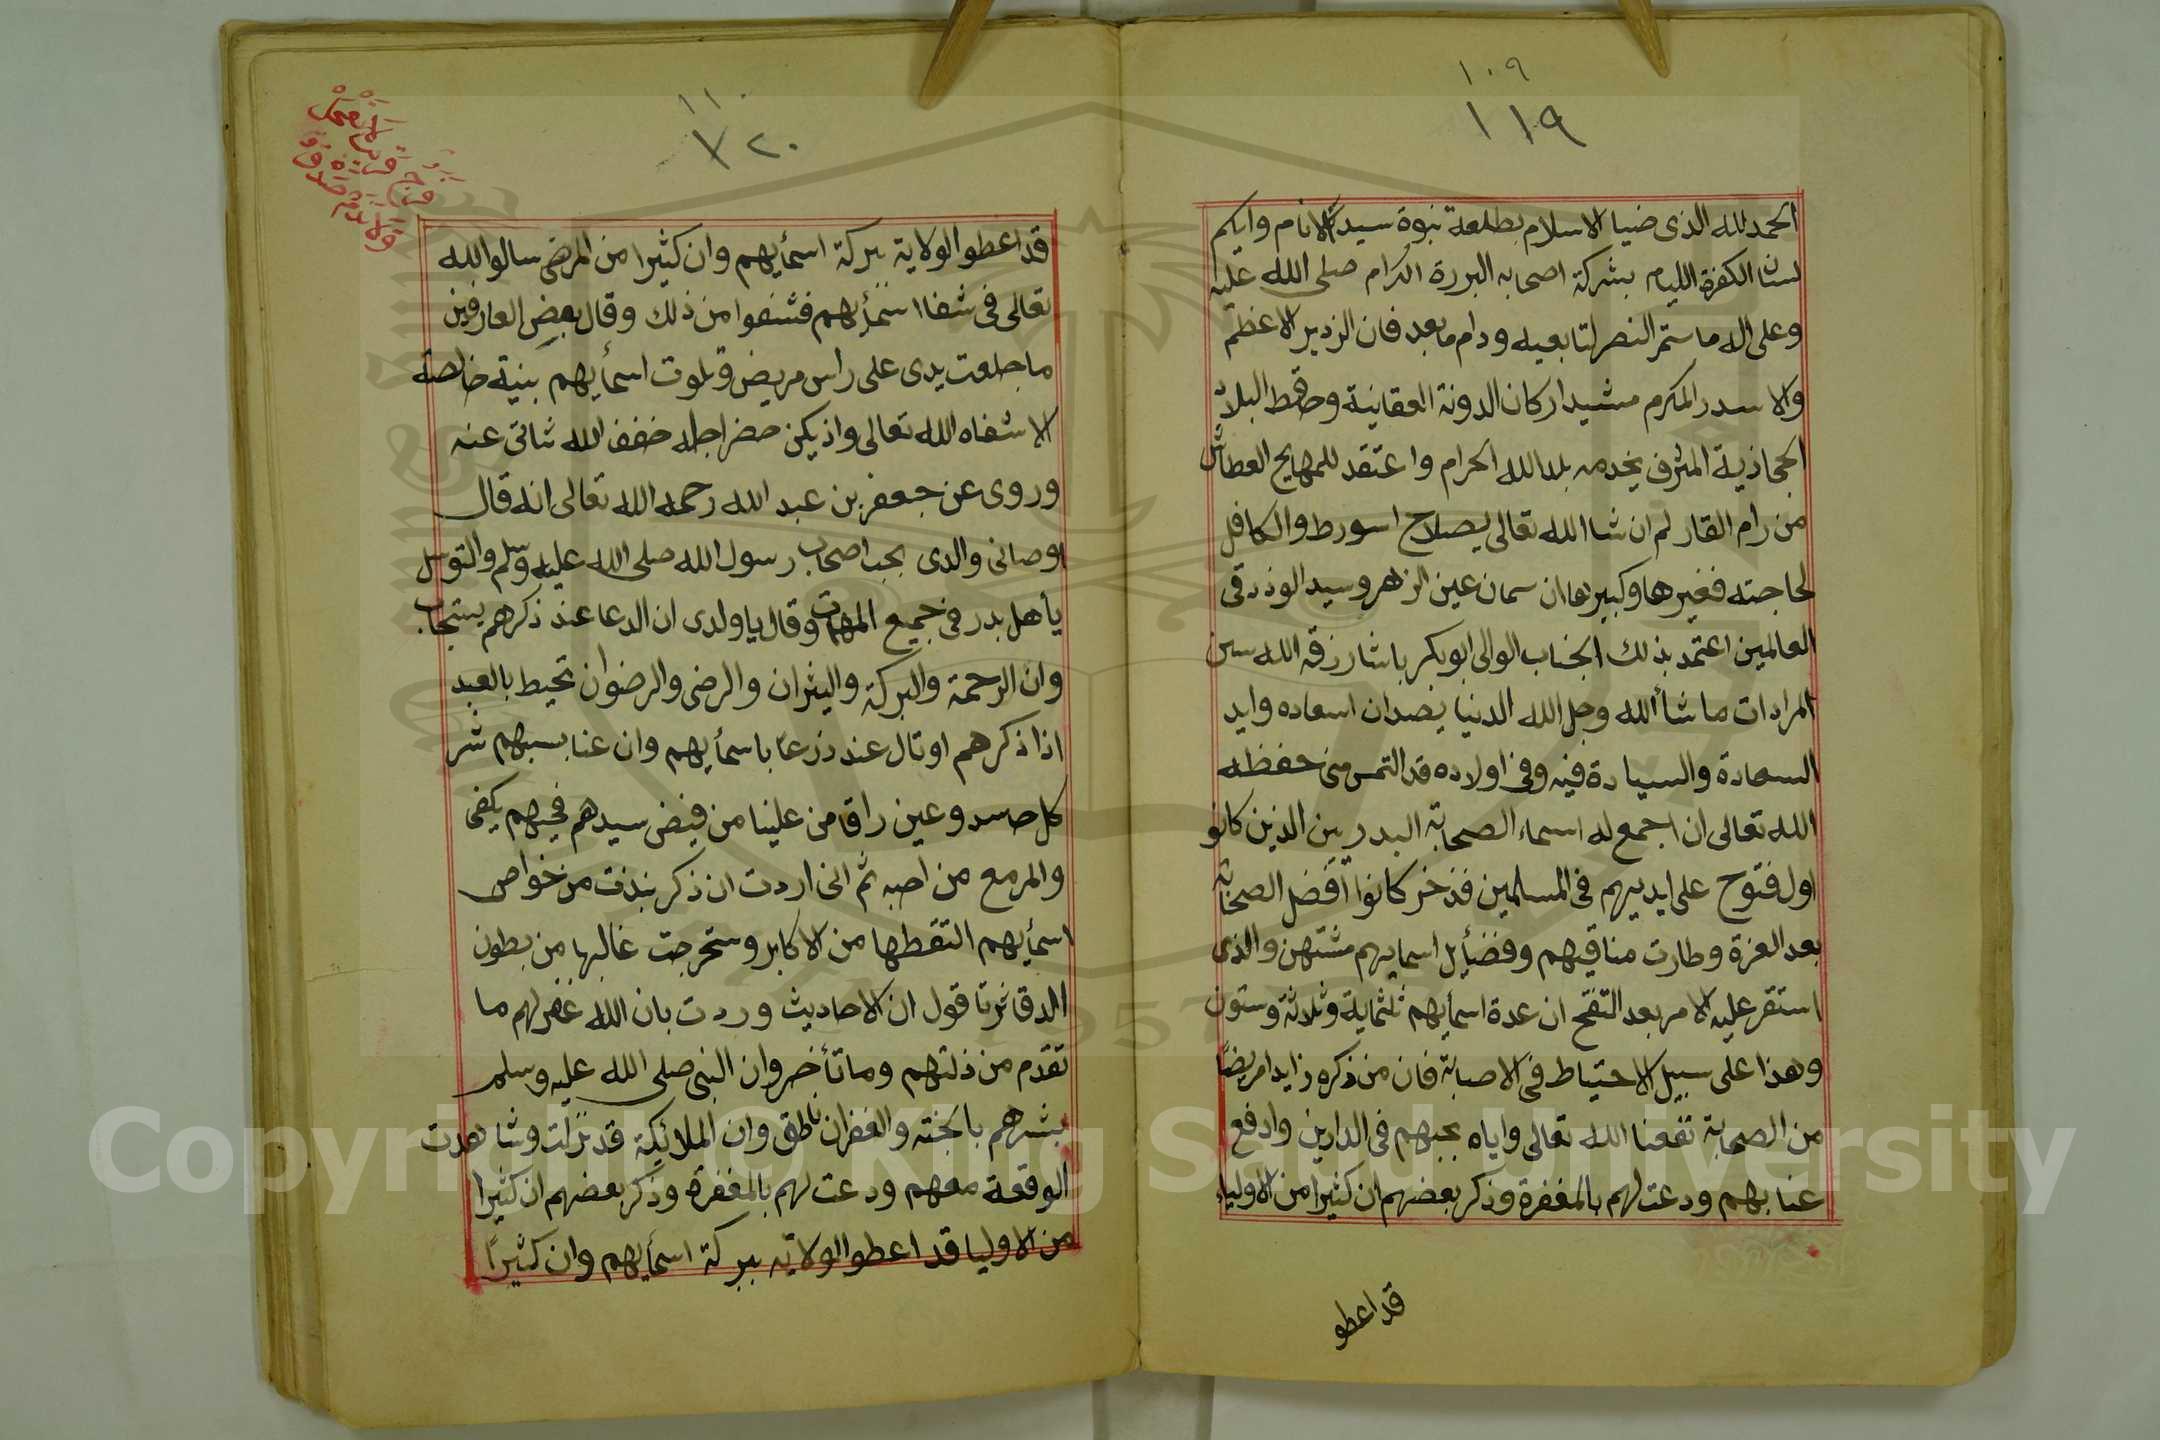 ١٠٩
١١٩
الحمد لله الذى ضيا الاسلام بطلعة نبوة سيد الانام وايكم
لسان الكفرة الليام بشركة اصحابه البررة الكرام صلى الله عليه
وعلى اله ما ستمر النصر لتابعيه ودام ما بعد فان الزدير الاعظم
والاسدر المكرم مشيد اركان الدونة العقانية وحافظ البلاد
الحجاذية المشرف بخدمه بلد الله الحرام واعتقد للمهايج العطاش
من رام القار لم ان شا الله تعالى يصلاح اسورط والكافل
لحاجته فغيرها وكبيرها ان سمان عين الزهر وسيد الوزدقى
العالمين اعتمد بذلك الجناب الوالى ابو بكر باشا رزقه الله سين
المرادات ما شأ الله وجل الله الدنيا يضدان اسعاده وايد
السعادة والسيادة فيه وفى اولاده قد التمس منى حفظه
الله تعالى ان اجمع له اسماء الصحابة البدريين الذين كانو
اول فتوح على ايديهم فى المسلمين فذخر كانوا افضل الصحابه
بعد العزة وطارت مناقيهم وفضأيل اسمايهم مشتهن والذى
استقر عليه الامر بعد التفتح ان عدة اسمأيهم ثلثماية وثلاثة وستون
وهذا على سبيل الاحتياط فى الاصبانة فان من ذكره زايدا مريضا
من الصحابة نفعنا الله تعالى واياه بحبهم فى الدارين وادفع
عنا بهم ودعت لهم بالمغفرة وذكر بعضهم ان كثيرا من الاولياء
قد اعطو
١١٠
٧٢٠
قد اعطو الولاية ببركة اسمأيهم وان كثيرا من المرضى سالوا الله
تعالى فى شفا اسمأيهم فشفوا من ذلك وقال بعض العارفين
ما جلعت يدى على راس مريض وتلوت اسمأيهم بنية خالصة
الا شفاه الله تعالى واذ يكن حضر اجله خفف الله شانى عنه
وروى عن جعفر بن عبد الله رحمه الله تعالى انه قال
اوصانى والدى بحب اصحاب رسول الله صلى الله عليه وسلم والتوسل
يأهل بدر فى جميع المهمات وقال يا ولدى ان الدعا عند ذكرهم يستجاب
وان الرحمة والبركة واليثران والرضى والرضوان تحيط بالعبد
اذا ذكرهم او تال عند ذزعا باسمأيهم وان عنا بسبهم شر
كل حاسد وعين راق من علينا من فيض سيدهم فحبهم يكفى
والمرمع من احبه ثم انى اردت ان ذكر بنذت من خواص
اسمأيهم التقطها من الاكابر وستخرجت غالبها من بطون
الدقاتر تا قول ان الاحاديث وردت بان الله غفر لهم ما
تقدم من ذلتهم وما تأخر وان النبى صلى الله عليه وسلم
بشرهم بالجنة والغفران ناطق وان الملائيكة قد نزلت وشاهدت
الوقعة معهم ودعت لهم بالمغفرة وذكر بعضهم ان كثيرا
من الاوليا قد اعطو الولاية ببركة اسمأيهم وان كثيرًا
Copyright © King Saud University